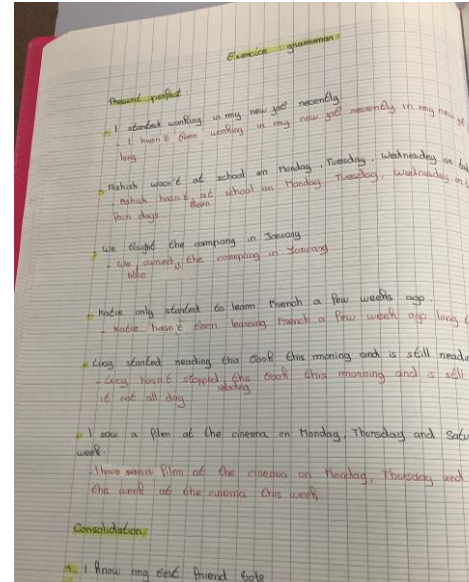 Exercice : grammar.
Present perfect
I started working in my new job recently
- I haven't been working in my new job recently in my new
long
Ashish wasn't at school on Monday, Tuesday, Wednesday or
- Ashish hasn't been at school on Monday, Tuesday, Wednesday or
four days
We bought the company in January.
- We have owned the company in January
Katie only started to learn French a few weeks ago.
- Katie hasn't been learning French a few week ago long
Lucy started reading this book this morning and is still
- Lucy hasn't stopped reading this book this morning and is still
it not all day
I saw a film at the cinema on Monday, Thursday and
week.
- I have seen a film at the cinema on Monday, Thursday and
this week at the cinema this week
Consolidation
1. I know my best friend